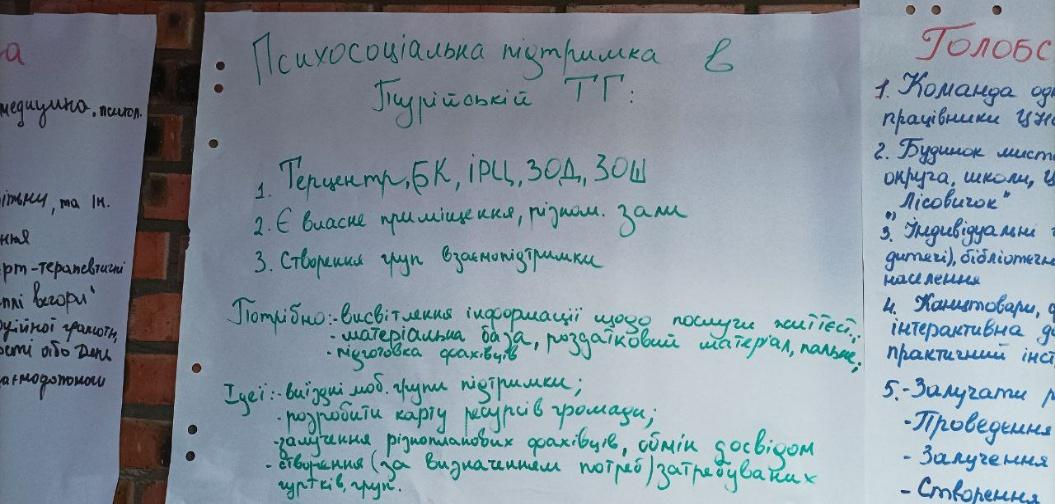 а
медицина, психол.
та ін.
ння
рт-терапевтичні
Психосоціальна підтримка в
Турійській ТГ:
1. Терцентр, БК, ІРЦ, ЗОД, ЗОШ
2. Є власне приміщення, різном. зали
3. Створення груп взаємопідтримки
Потрібно: - висвітлення інформації щодо послуги
- матеріальна база, роздатковий матеріал, пальне;
- підготовка фахівців
Ідеї: - виїздні моб. групи підтримки;
- розробити карту ресурсів громади;
- залучення різнопланових фахівців, обмін досвідом
- створення (за визначенням потреб) затребуваних
гуртків, груп.
Голобс
1. Команда
працівники
2. Будинок
округа, школи,
Лісовичок"
3. Індивідуальні
бібліотечн
населення
4. Канцтовари,
інтерактивна
практичний
5. - Залучати
- Проведення
- Залучення
- Створення